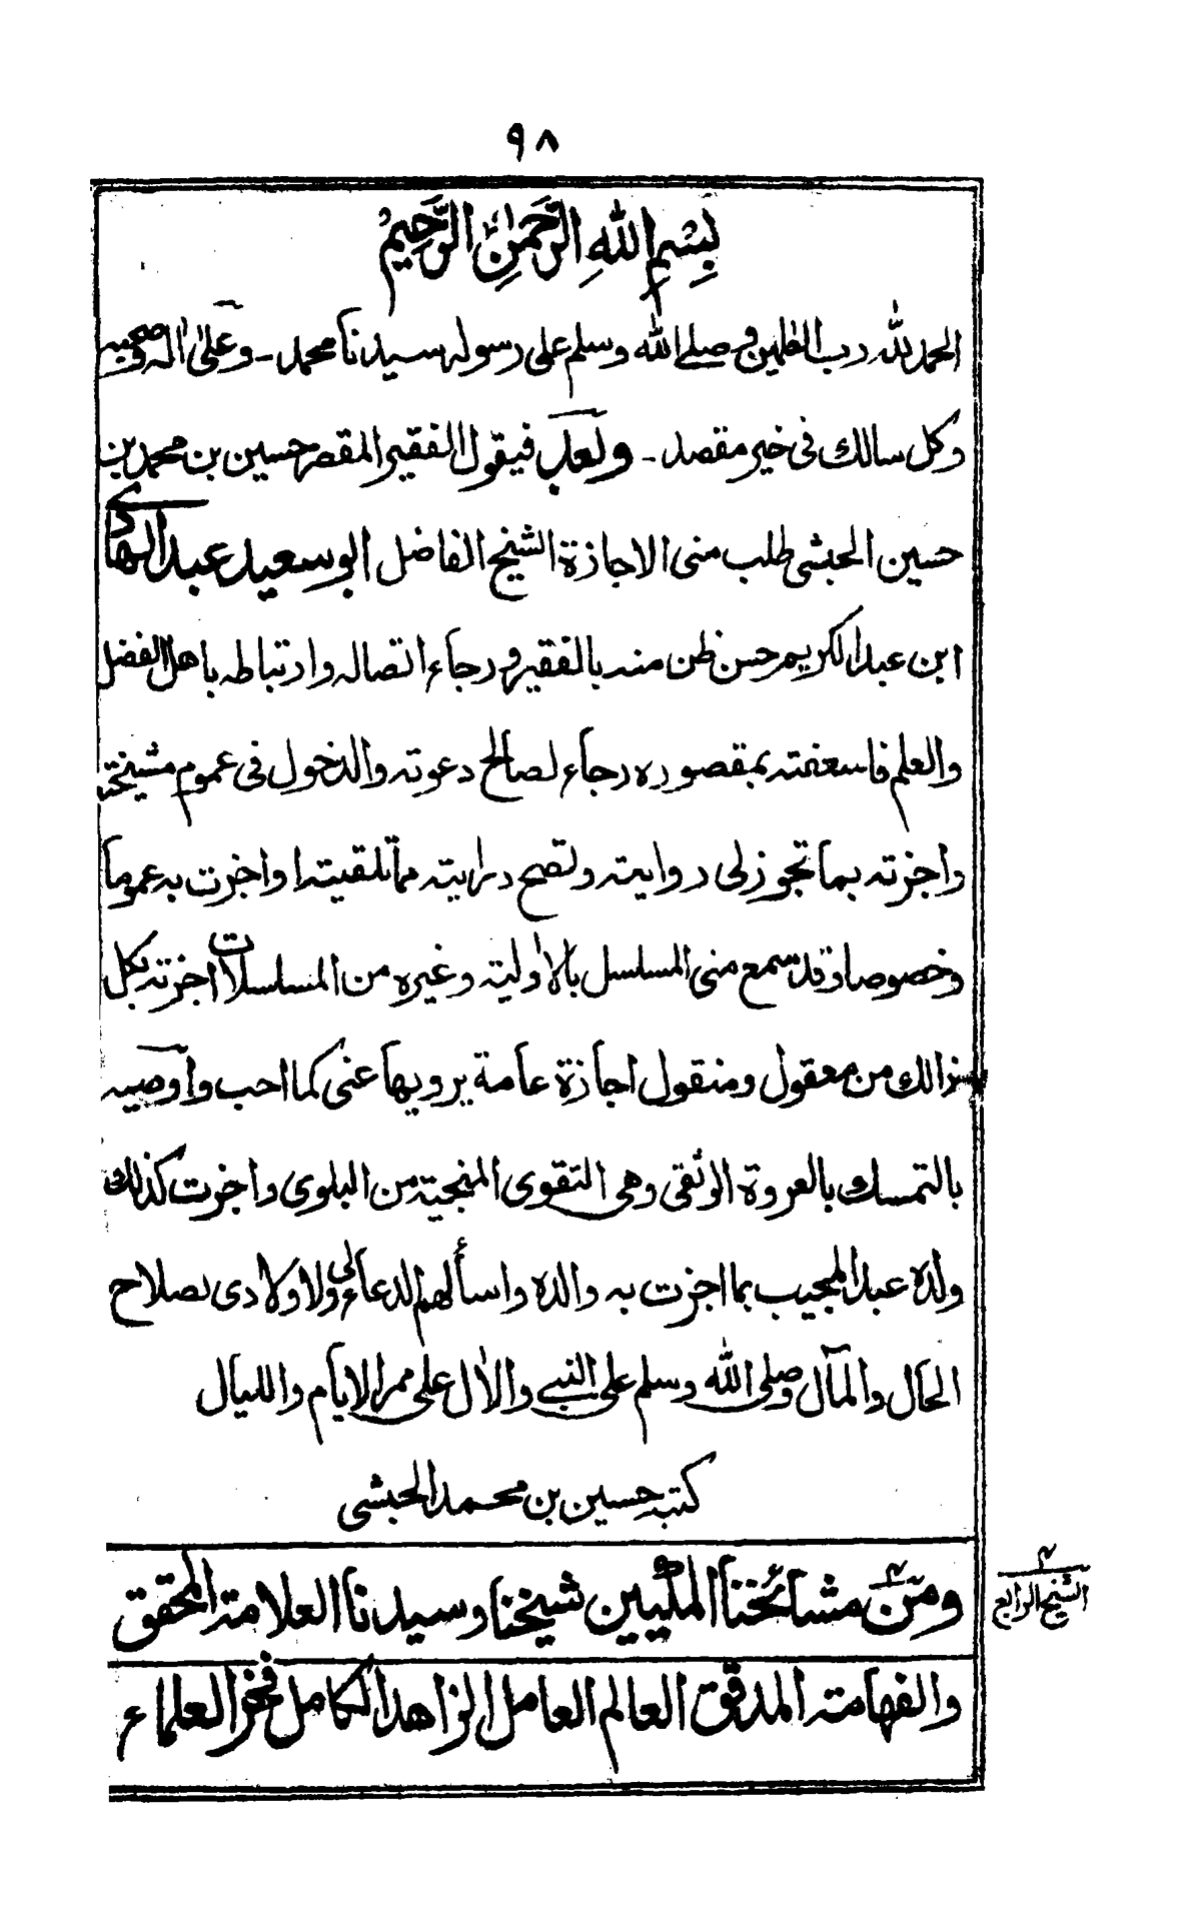 ٩٨
بِسْمِ اللهِ الرَّحْمٰنِ الرَّحِيْمُ
الحمد لله رب العٰلمين و صلى الله وسلم على رسوله سيدنا محمد - وعلى اٰله وصحبه
وكل سالك فى خير مقصد - وبعد فيقول الفقير المقصر حسين بن محمد بن
حسين الحبشى طلب منى الاجازة الشيخ الفاضل ابو سعيد عبد الهادى
ابن عبد الكريم حسن ظن منه بالفقير و رجاء اتصاله وارتباطه باهل الفضل
والعلم فاسعفته بمقصوره رجاء لصالح دعوته والدخول فى عموم مشيخته
واجزته بما تجوز لى روايته وتصح درايته مما تلقيته او اجزت به عموما
وخصوصا وقد سمع منى المسلسل بالاولية وغيره من المسلسلات اجزته بكل
ذالك من معقول ومنقول اجازة عامة يرويها عنى كما احب واوصيه
بالتمسك بالعروة الوثقى وهى التقوى المنجية من البلوى واجزت كذلك
ولده عبد المجيب بما اجزت به والده واسألهم الدعاء لى ولاولادى بصلاح
الحال والمآل وصلى الله وسلم على النبى والاٰل على ممر الايام والليال
كتبه حسين بن محمد الحبشى
ومن مشائخنا المكيين شيخنا وسيدنا العلامة المحقق
الشيخ الرابع
والفهامة المدقق العالم العامل الزاهد الكامل فخر العلماء